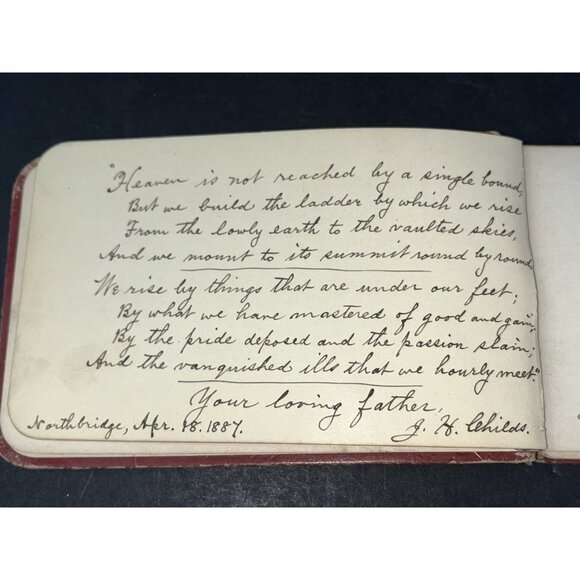 "Heaven is not reached by a single bound,
But we build the ladder by which we rise
From the lowly earth to the vaulted skies,
And we mount to its summit round by round.
We rise by things that are under our feet;
By what we have mastered of good and gain;
By the pride deposed and the passion slain;
And the vanquished ills that we hourly meet."
Your loving father,
Northbridge, Apr. 18. 1887. J. H. Childs.